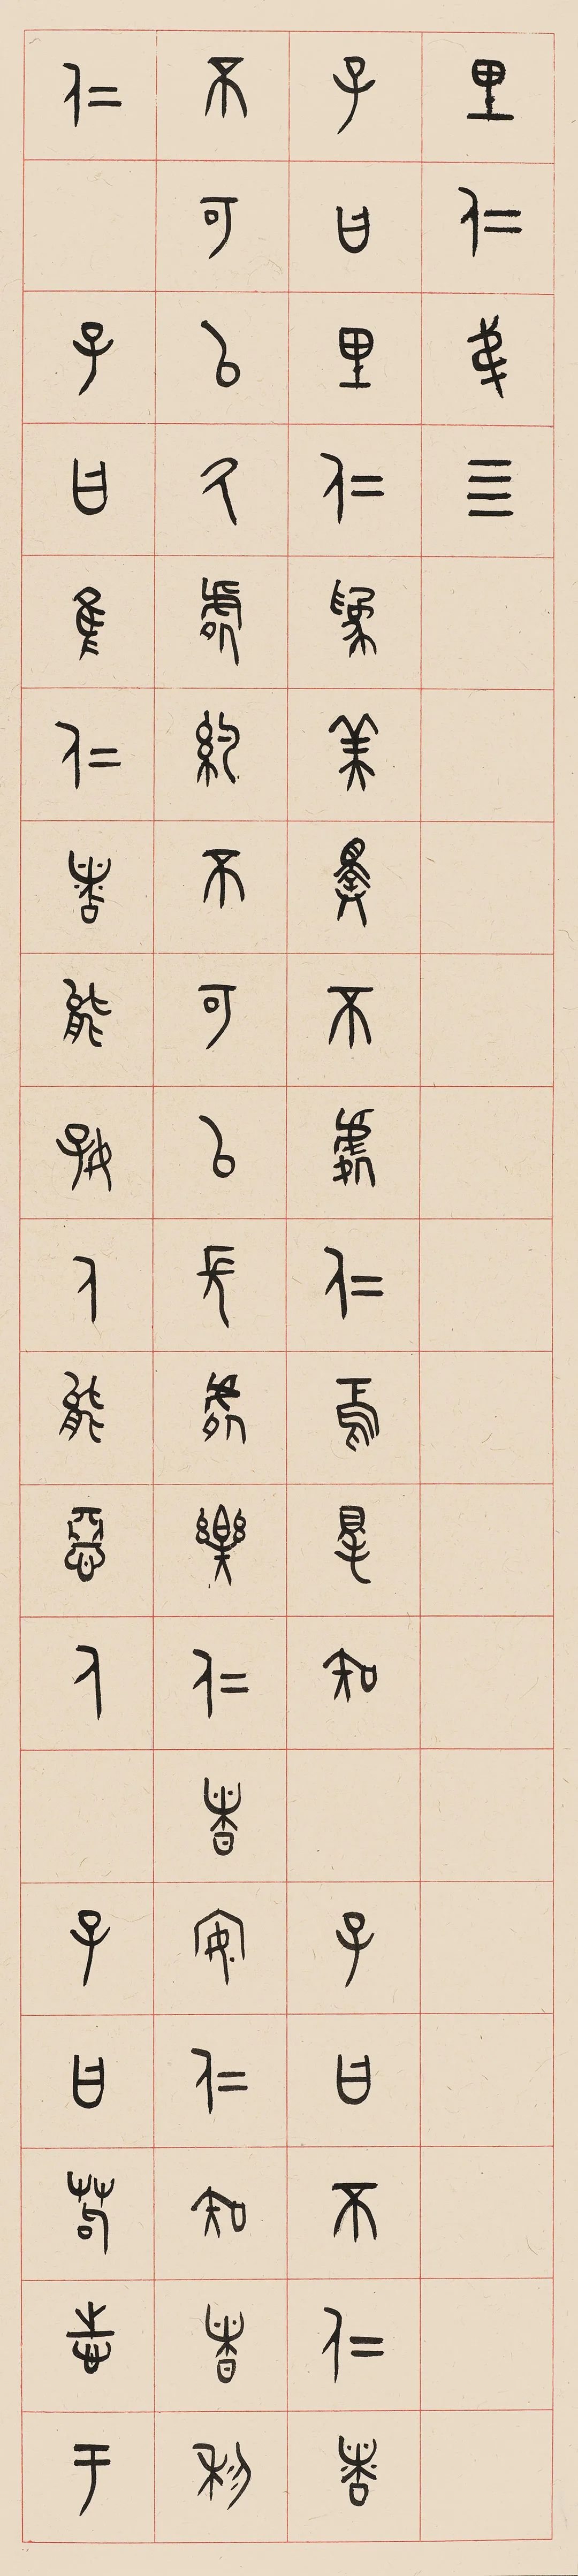 里仁弟亖
子曰里仁爲美擇不處仁焉得知　子曰不仁者
不可以久處約不可以長處樂仁者安仁知者利
仁　子曰隹仁者能好人能惡人　子曰苟志于